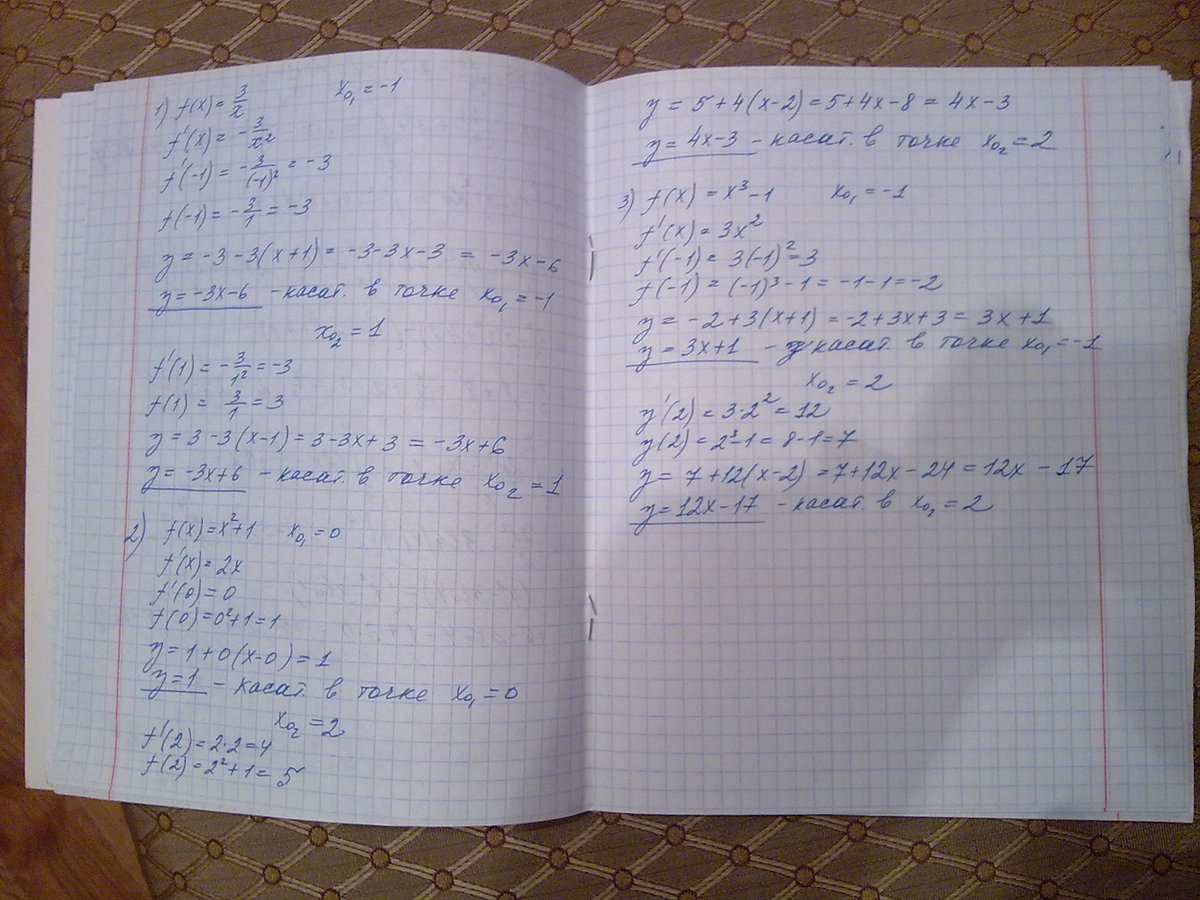 1) f(x) = 3/x x₀₁ = -1
f'(x) = -3/x²
f'(-1) = -3/(-1)² = -3
f(-1) = -3/1 = -3
y = -3-3(x+1) = -3-3x-3 = -3x-6
y = -3x-6 - касат. в точке x₀₁ = -1
x₀₂ = 1
f'(1) = -3/1² = -3
f(1) = 3/1 = 3
y = 3-3(x-1) = 3-3x+3 = -3x+6
y = -3x+6 - касат. в точке x₀₂ = 1
2) f(x) = x²+1 x₀₁ = 0
f'(x) = 2x
f'(0) = 0
f(0) = 0²+1 = 1
y = 1+0(x-0) = 1
y = 1 - касат. в точке x₀₁ = 0
x₀₂ = 2
f'(2) = 2·2 = 4
f(2) = 2²+1 = 5
y = 5+4(x-2) = 5+4x-8 = 4x-3
y = 4x-3 - касат. в точке x₀₂ = 2
3) f(x) = x³-1 x₀₁ = -1
f'(x) = 3x²
f'(-1) = 3(-1)² = 3
f(-1) = (-1)³-1 = -1-1 = -2
y = -2+3(x+1) = -2+3x+3 = 3x+1
y = 3x+1 - касат. в точке x₀₁ = -1
x₀₂ = 2
y'(2) = 3·2² = 12
y(2) = 2³-1 = 8-1 = 7
y = 7+12(x-2) = 7+12x-24 = 12x-17
y = 12x-17 - касат. в x₀₂ = 2